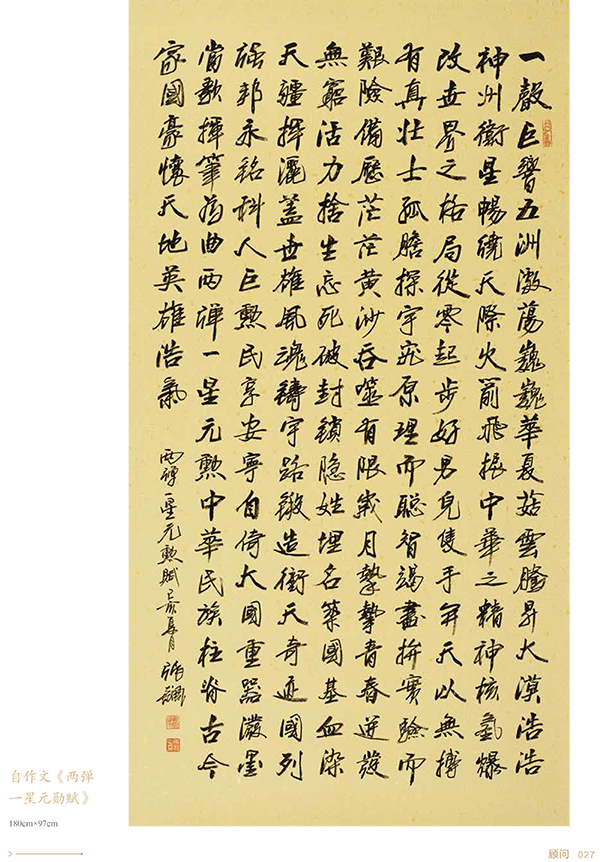 一聲巨響五洲激蕩巍巍華夏菇雲騰昇大漠浩浩
神州衛星暢繞天際火箭飛振中華之精神核氣爆
改世界之格局從零起步好男兒隻手開天以無搏
有真壯士孤膽探宇究原理而聰智竭盡拚實驗而
艱險備歷茫茫黃沙吞噬有限歲月摯摯青春迸發
無窮活力捨生忘死破封鎖隐姓埋名築國基血染
天疆揮灑蓋世雄風魂鑄宇路緻造衝天奇迹國列
強邦永銘科人巨勲民享安寧自倚大國重器潑墨
當歌揮筆為曲兩彈一星元勲中華民族柱脊古今
家國豪懷天地英雄浩氣
兩彈一星元勲賦己亥夏月
自作文《两弹
一星元勋赋》
180cm×97cm
顾问 027